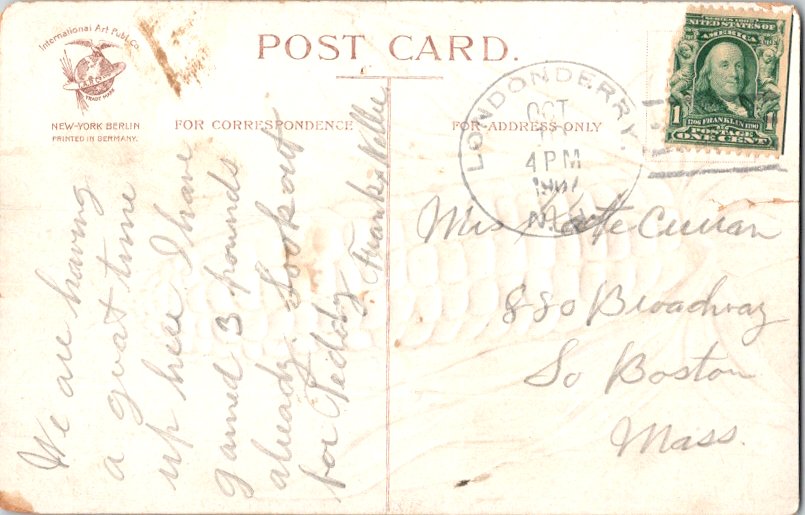 International Art Publ. Co.
TRADE MARK
NEW-YORK BERLIN
PRINTED IN GERMANY.
POST CARD.
FOR CORRESPONDENCE
FOR ADDRESS ONLY
We are having
a great time
up here I have
gained 3 pounds
already. Look out
for Teddy
Frank &
LONDONDERRY,
OCT
4 PM
N.H.
SERIES 1902
UNITED STATES OF
AMERICA
1 1
1706 FRANKLIN 1790
POSTAGE
ONE CENT
Mrs Curran
880 Broadway
So Boston
Mass.